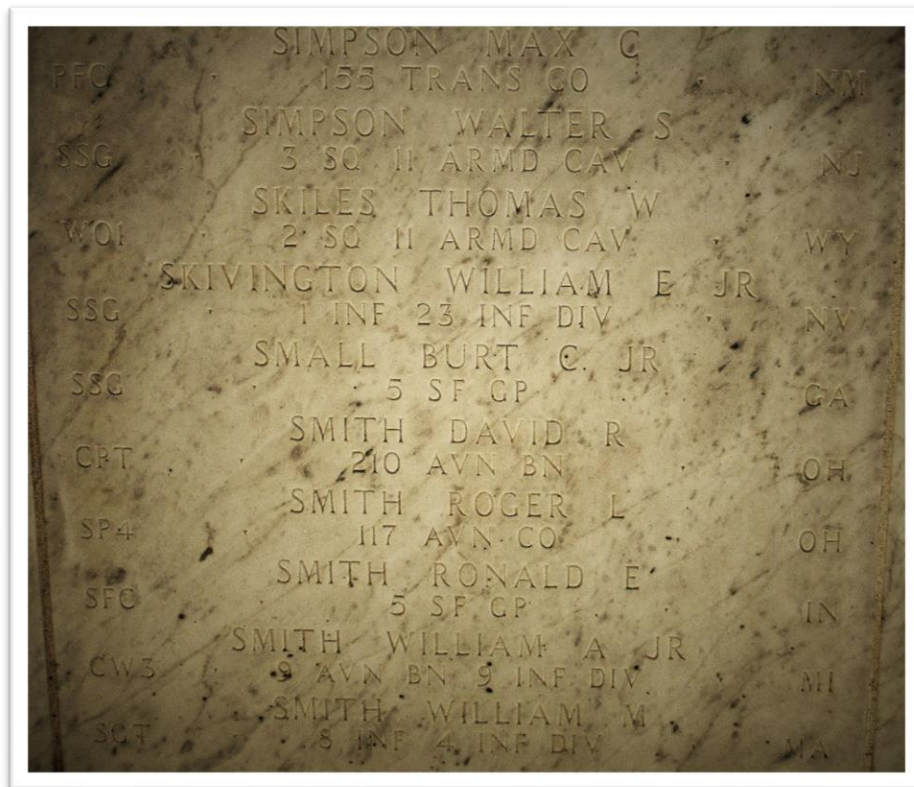 SIMPSON MAX C
PFC 155 TRANS CO NM
SIMPSON WALTER S
SSG 3 SQ 11 ARMD CAV NJ
SKILES THOMAS W
WO1 2 SQ 11 ARMD CAV WY
SKIVINGTON WILLIAM E JR
SSG 1 INF 23 INF DIV NV
SMALL BURT C. JR
SSG 5 SF GP GA
SMITH DAVID R
CPT 210 AVN BN OH
SMITH ROGER L
SP4 117 AVN CO OH
SMITH RONALD E
SFC 5 SF GP IN
SMITH WILLIAM A JR
CW3 9 AVN BN 9 INF DIV MI
SMITH WILLIAM M
SGT 8 INF 4 INF DIV MA